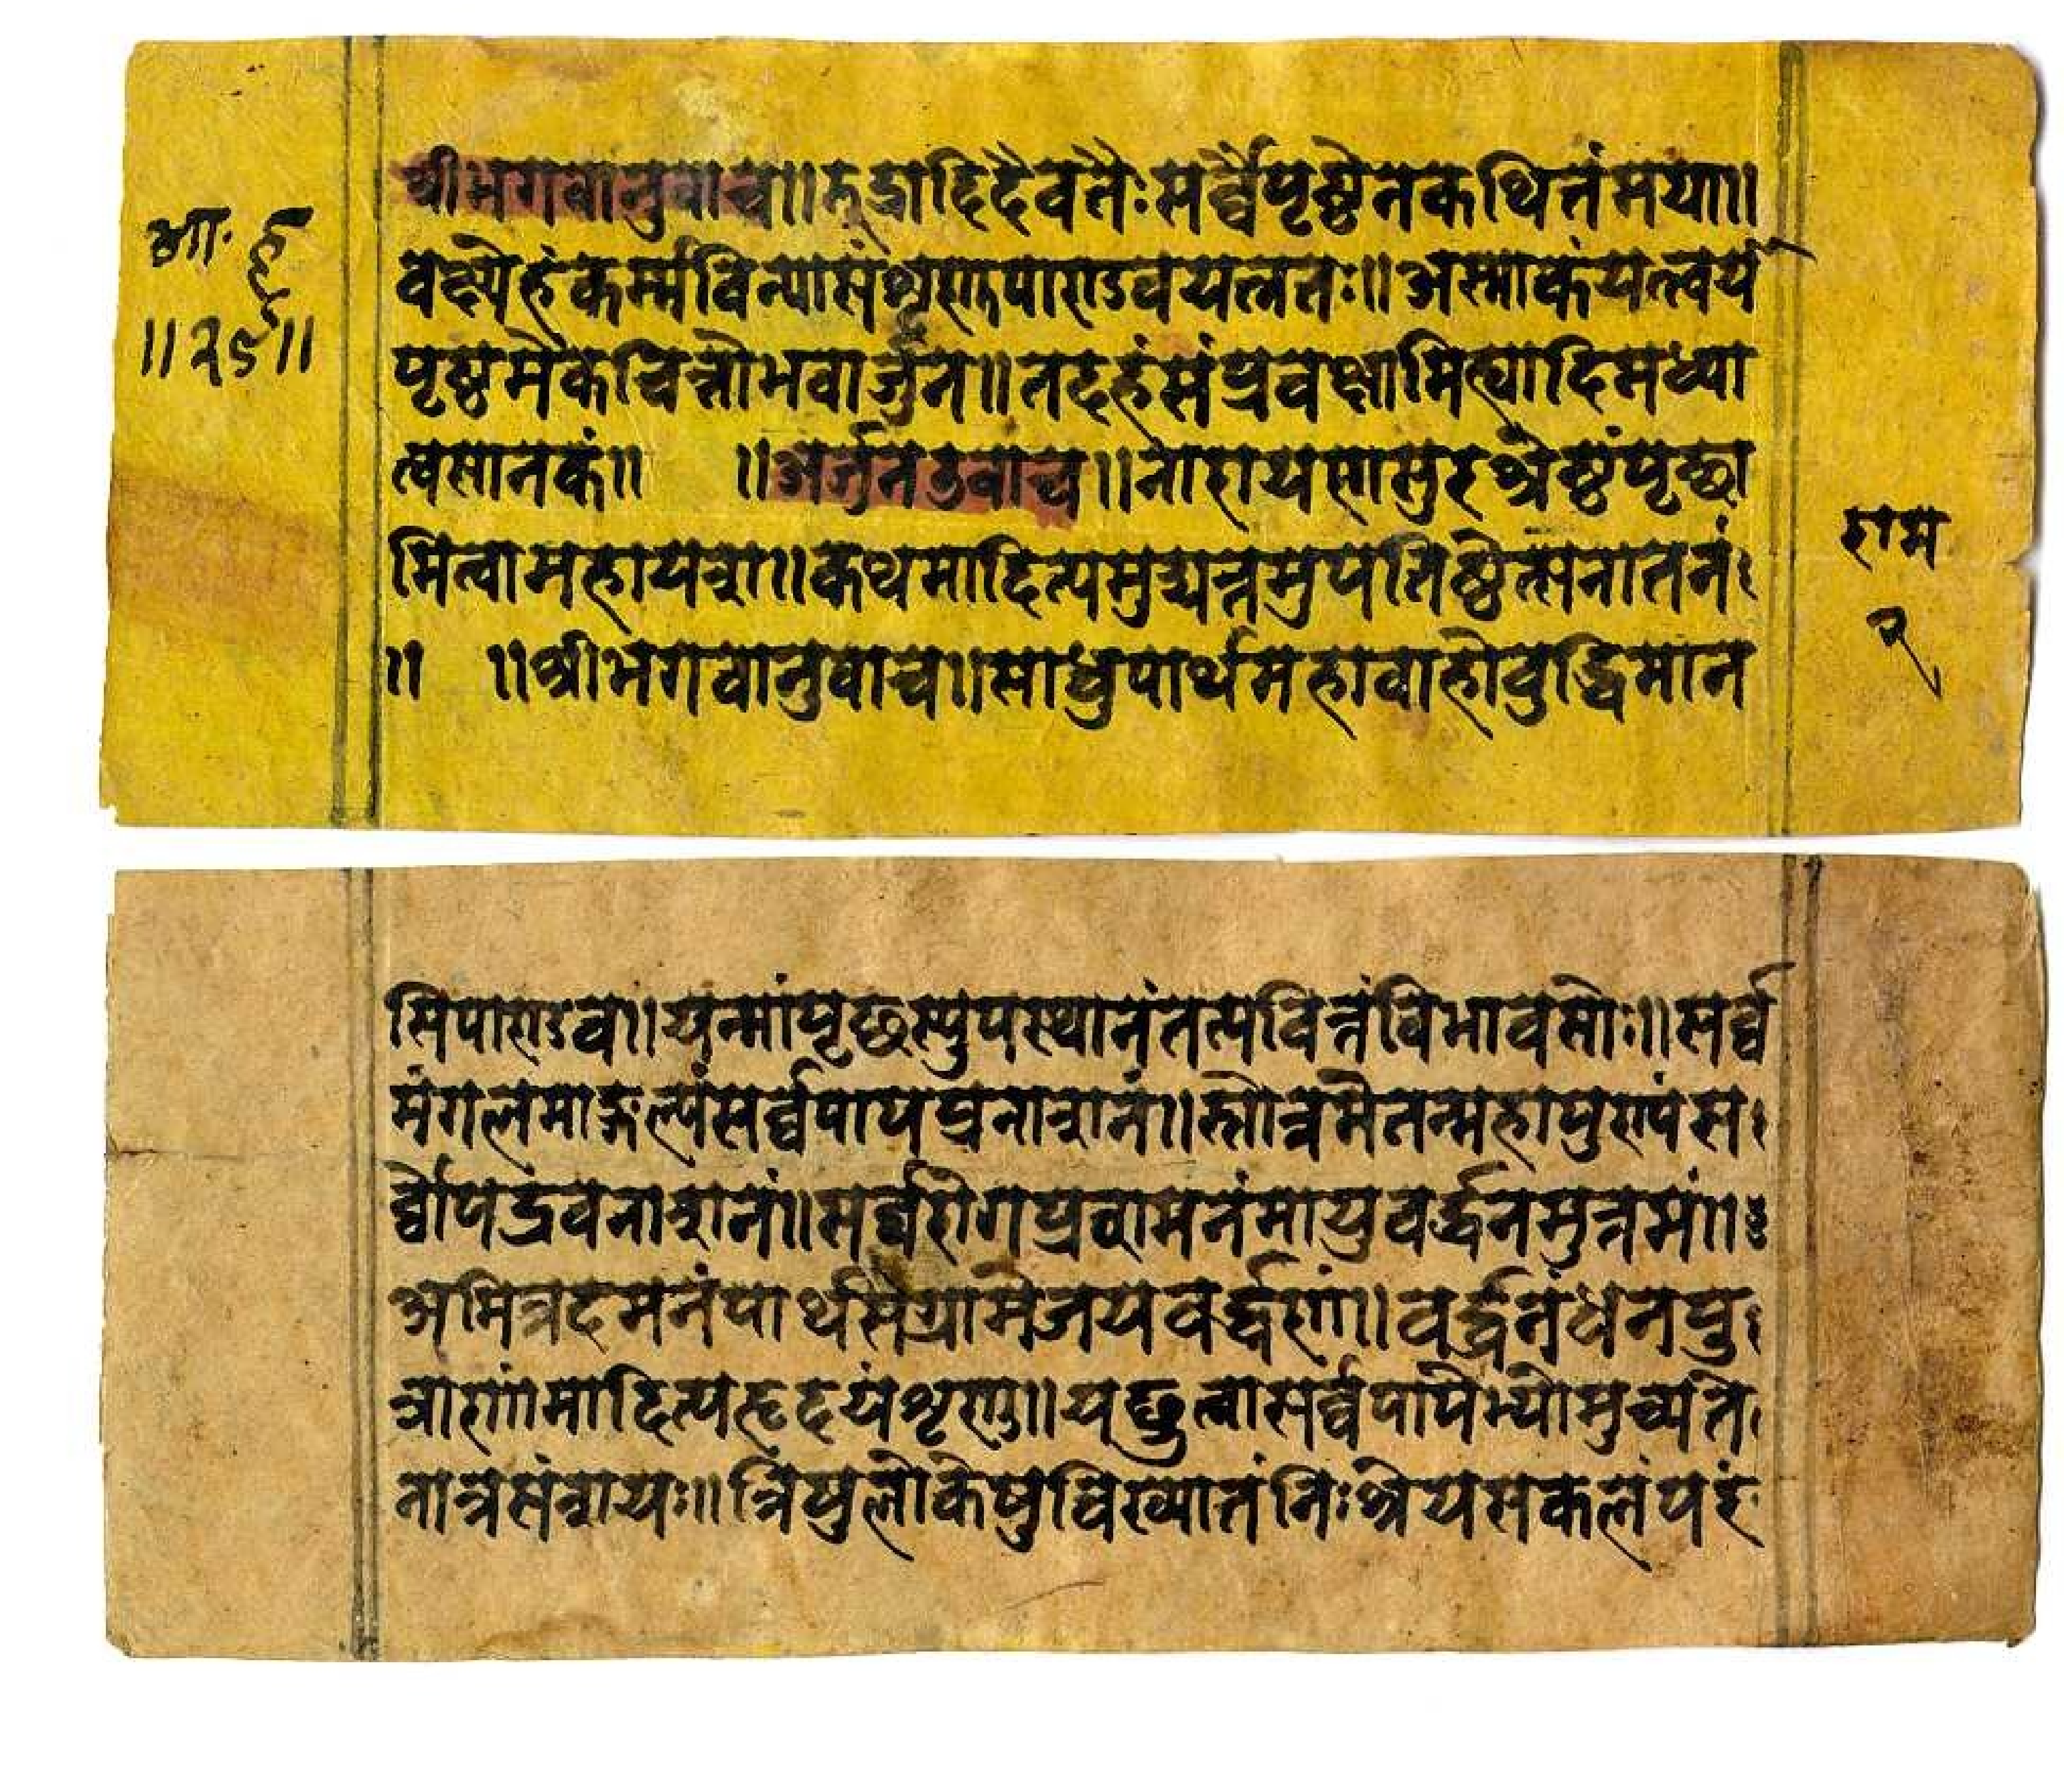 आ. हृ
॥२९॥
श्रीभगवानुवाच॥रुद्रादिदैवतैःसर्वैपृष्ठेनकथितंमया॥
वक्ष्येहंकर्म्मविन्यासंशृणुपाण्डवयत्नतः॥अस्माकंयत्त्वयं
पृष्ठमेकचित्तोभवार्जुन॥तदहंसंप्रवक्षामित्यादिमध्या
त्वसानकं॥ ॥अर्जुनउवाच॥नारायणसुरश्रेष्ठंपृच्छा
मित्वामहायशा॥कथमादित्यमुद्यन्तमुपतिष्ठेत्सनातनं
॥ ॥श्रीभगवानुवाच॥साधुपार्थमहावाहोवुद्धिमान
राम
२
सिपाण्डव॥यन्मांपृच्छस्युपस्थानंतत्पवित्रंविभावसोः॥सर्व्व
मंगलमाङ्गल्यंसर्व्वपापप्रनाशनं॥स्तोत्रमेतन्महापुण्यंस
र्व्वोपद्रवनाशनं॥सर्व्वरोगप्रशमनंमायुवर्द्धनमुत्तमं॥
अमित्रदमनंपार्थसंग्रामेजयवर्द्धणं॥वर्द्धनंधनपु
त्राणांमादित्यहृदयंशृणु॥यच्छ्रुत्वासर्व्वपापेभ्योमुच्यते
नात्रसंशयः॥त्रिषुलोकेषुविख्यातंनिःश्रेयसकलंपरं